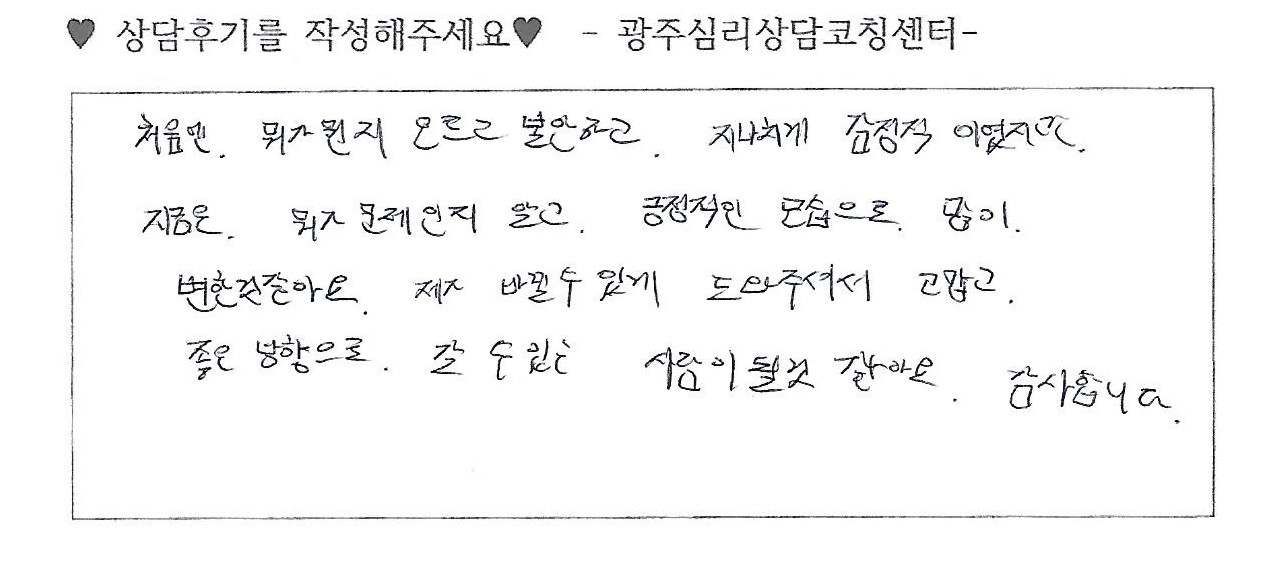 ♥ 상담후기를 작성해주세요♥ - 광주심리상담코칭센터-
처음엔. 뭐가 뭔지 모르고 불안하고. 지나치게 감정적 이였지만.
지금은. 뭐가 문제인지 알고. 긍정적인 모습으로. 많이.
변한것같아요. 제가 바뀔수있게 도와주셔서 고맙고.
좋은 방향으로. 갈 수 있는 사람이 될것 같아요. 감사합니다.